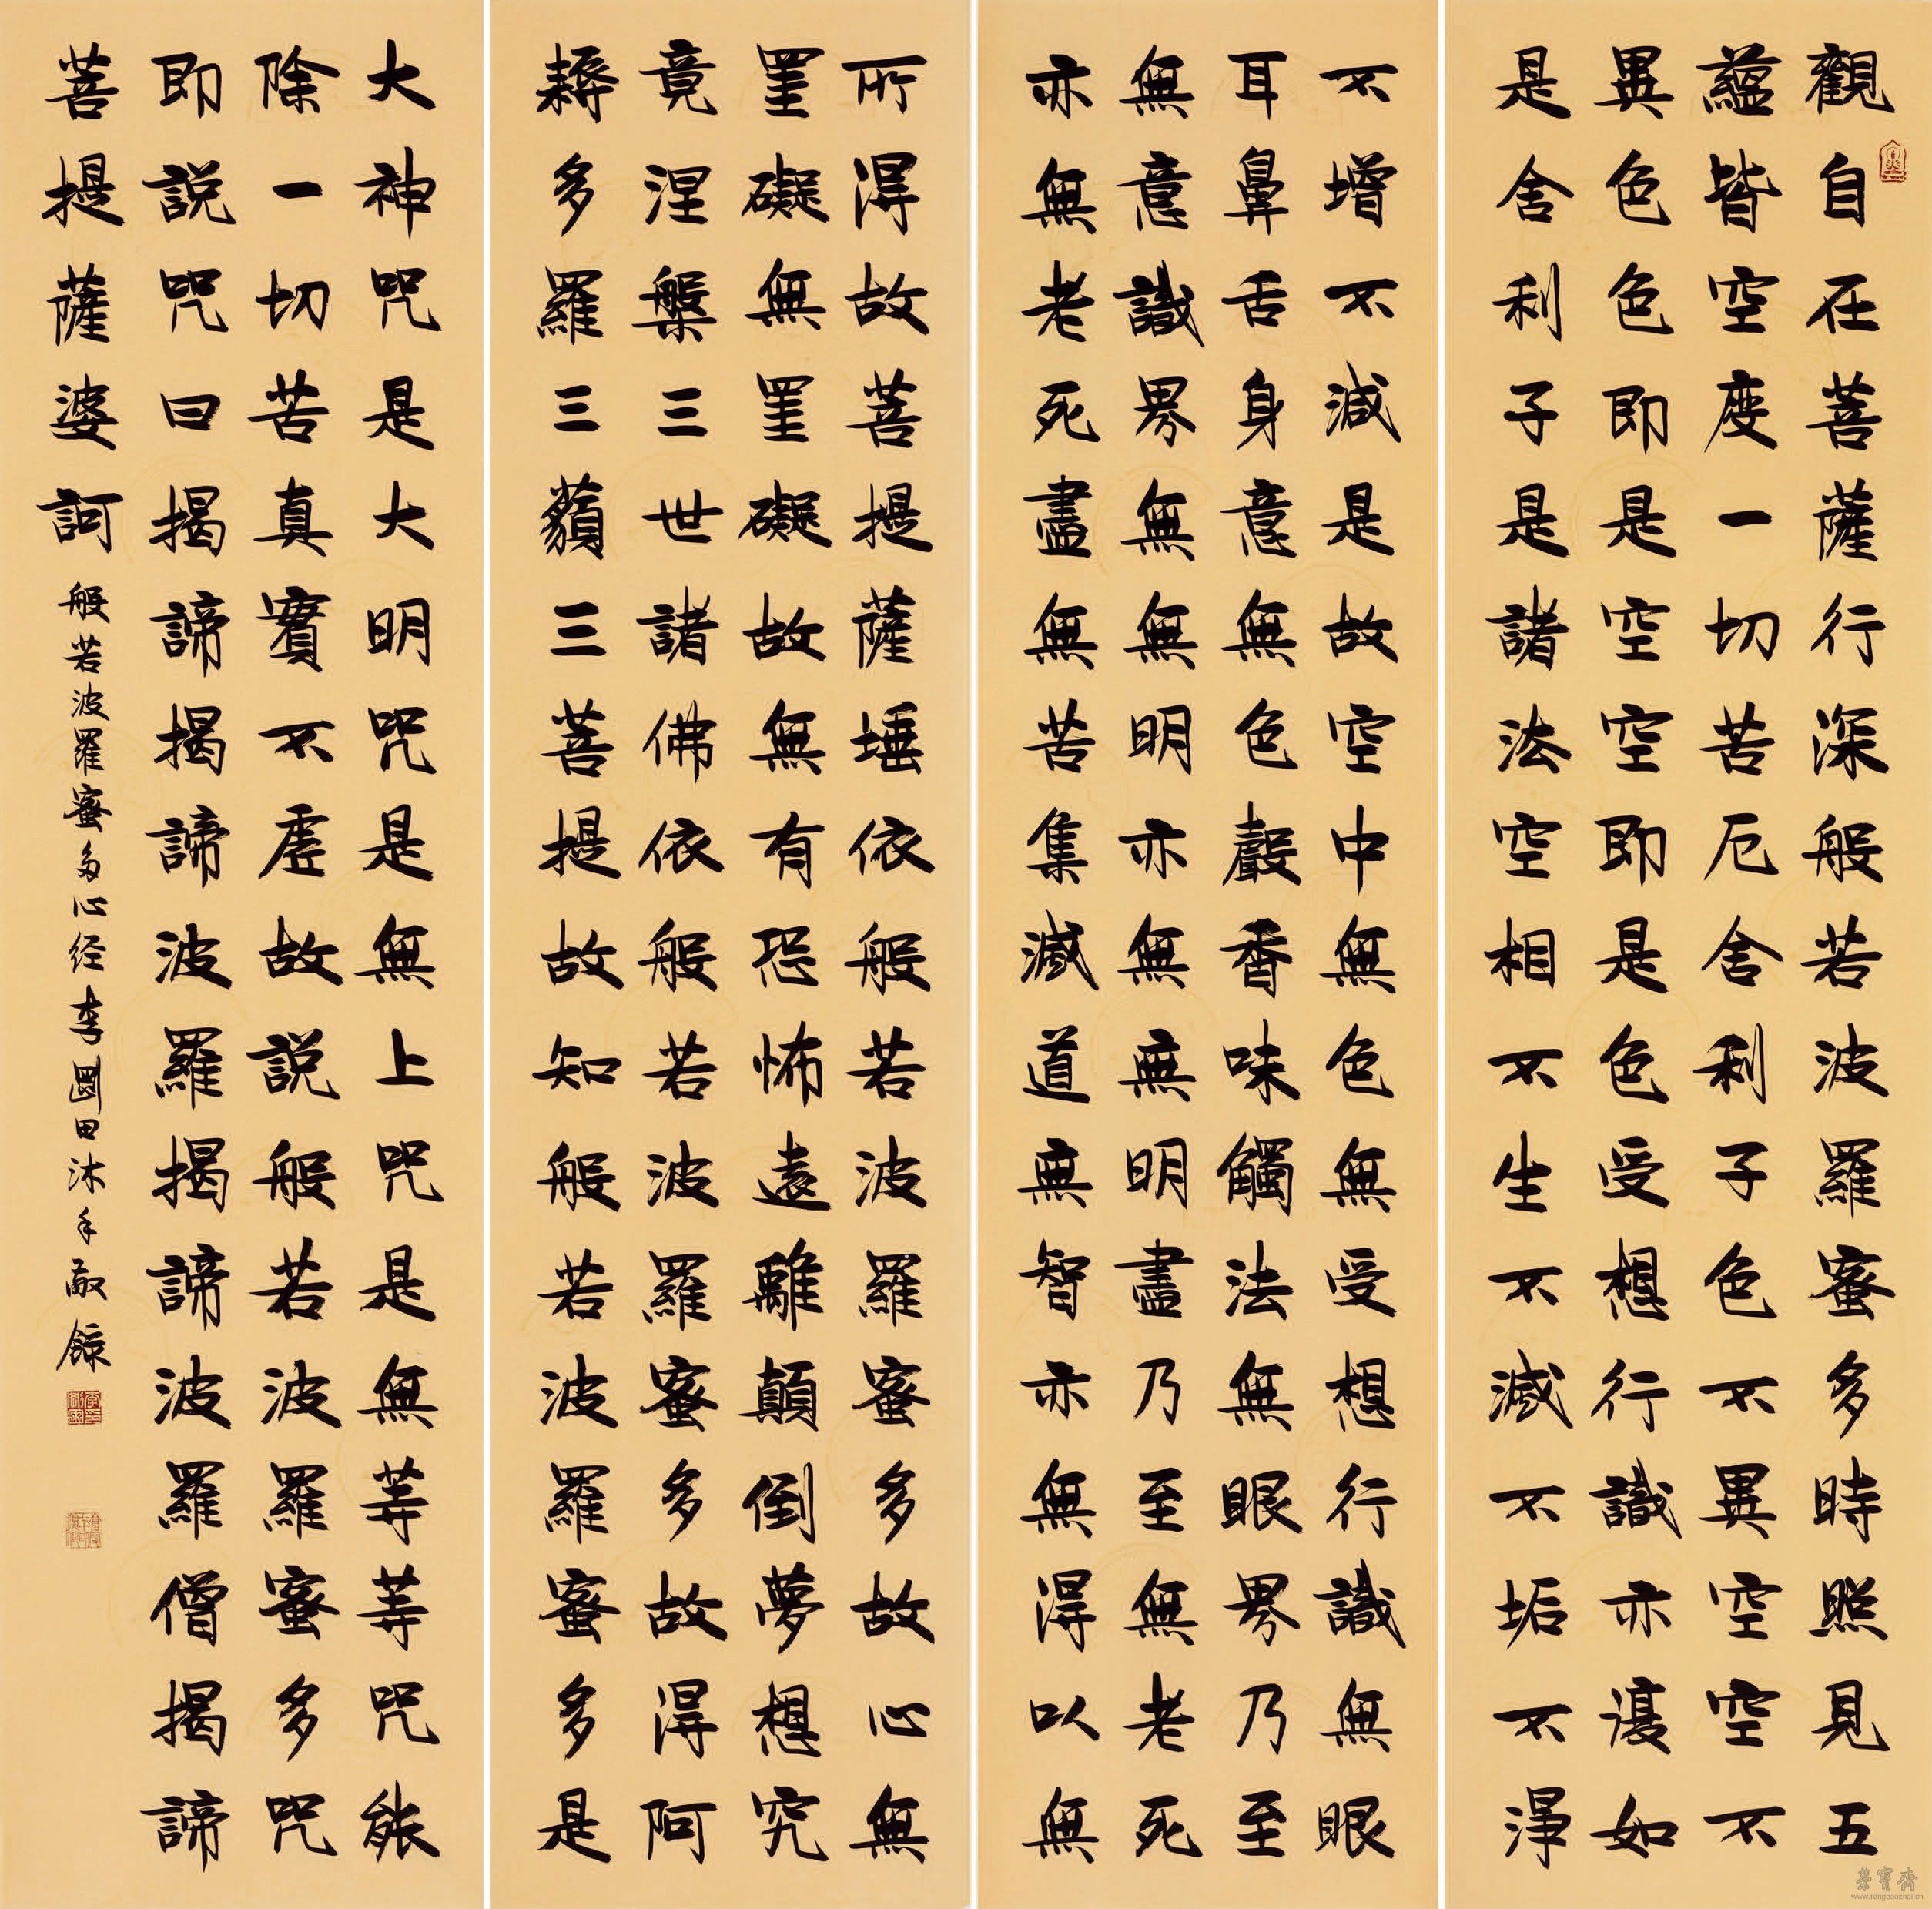 觀自在菩薩行深般若波羅蜜多時照見五
蘊皆空度一切苦厄舍利子色不異空空不
異色色即是空空即是色受想行識亦復如
是舍利子是諸法空相不生不滅不垢不淨
不增不減是故空中無色無受想行識無眼
耳鼻舌身意無色聲香味觸法無眼界乃至
無意識界無無明亦無無明盡乃至無老死
亦無老死盡無苦集滅道無智亦無得以無
所得故菩提薩埵依般若波羅蜜多故心無
罣礙無罣礙故無有恐怖遠離顛倒夢想究
竟涅槃三世諸佛依般若波羅蜜多故得阿
耨多羅三藐三菩提故知般若波羅蜜多是
大神咒是大明咒是無上咒是無等等咒能
除一切苦真實不虛故說般若波羅蜜多咒
即說咒曰揭諦揭諦波羅揭諦波羅僧揭諦
菩提薩婆訶
般若波羅蜜多心经李國田沐手敬錄
榮寶齋
www.rongbaozhai.cn